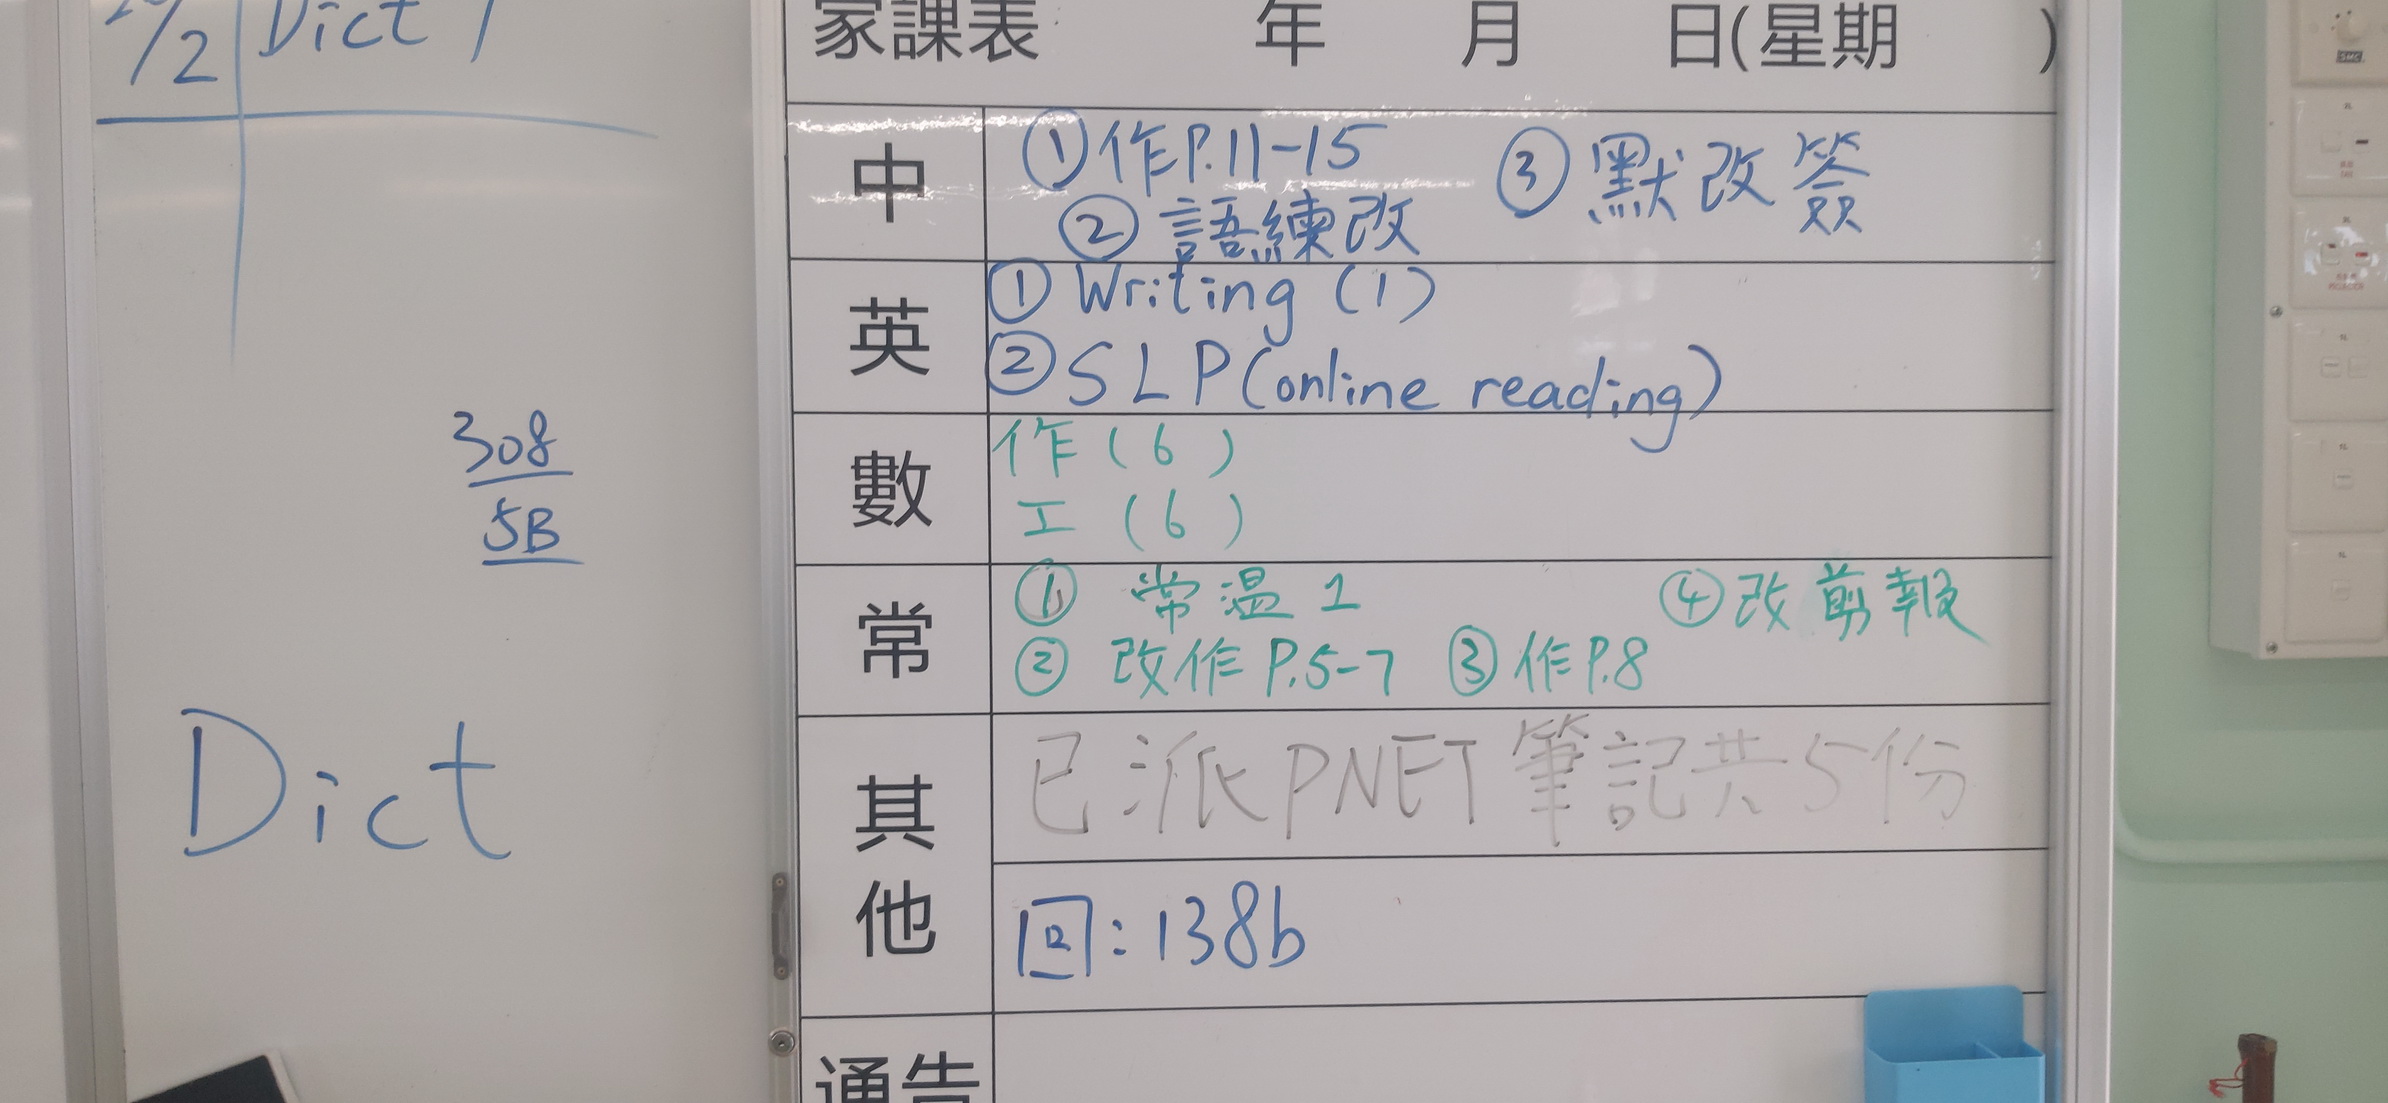 /2 Dict 1
308
5B
Dict
家課表 年 月 日(星期 )
中
①作P.11-15 ③默改簽
②語練改
英
①Writing (1)
②SLP(online reading)
數
作(6)
工(6)
常
① 常溫1 ④改剪報
② 改作P.5-7 ③作P.8
其他
已派PNET筆記共5份
回:138b
通告